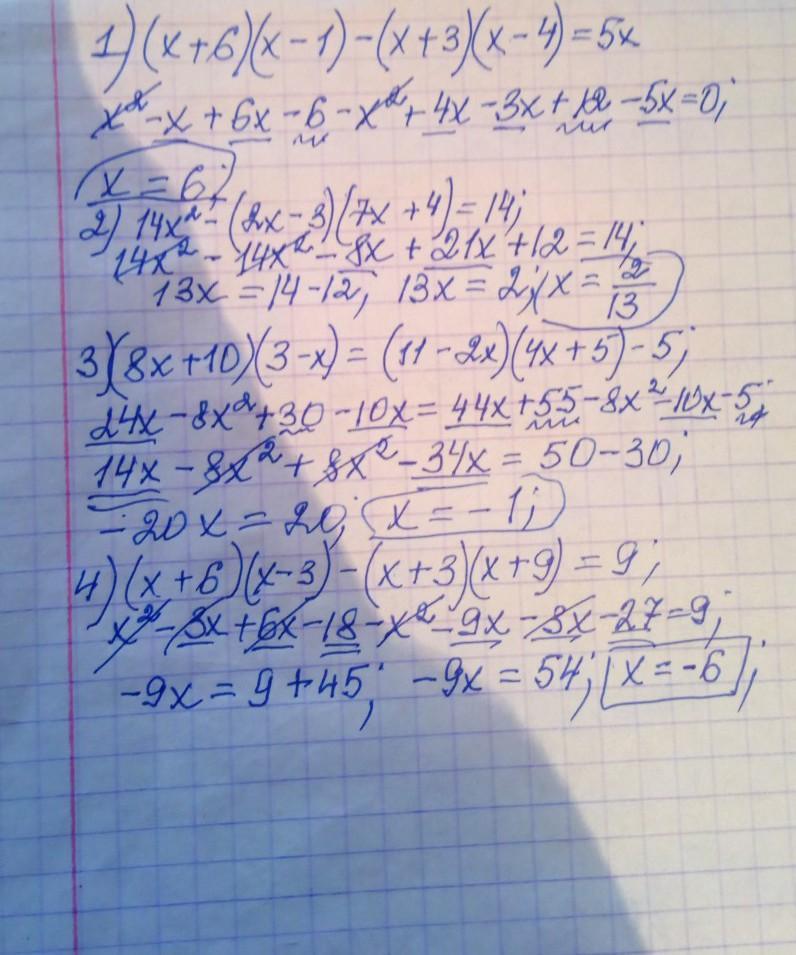 1) (x+6)(x-1)-(x+3)(x-4)=5x
x²-x+6x-6-x²+4x-3x+12-5x=0;
x=6;
2) 14x²-(2x-3)(7x+4)=14;
14x²-14x²-8x+21x+12=14;
13x=14-12; 13x=2; x=2/13
3) (8x+10)(3-x)=(11-2x)(4x+5)-5;
24x-8x²+30-10x=44x+55-8x²-10x-5;
14x-8x²+8x²-34x=50-30;
-20x=20; x=-1;
4) (x+6)(x-3)-(x+3)(x+9)=9;
x²-3x+6x-18-x²-9x-3x-27=9;
-9x=9+45; -9x=54; x=-6;